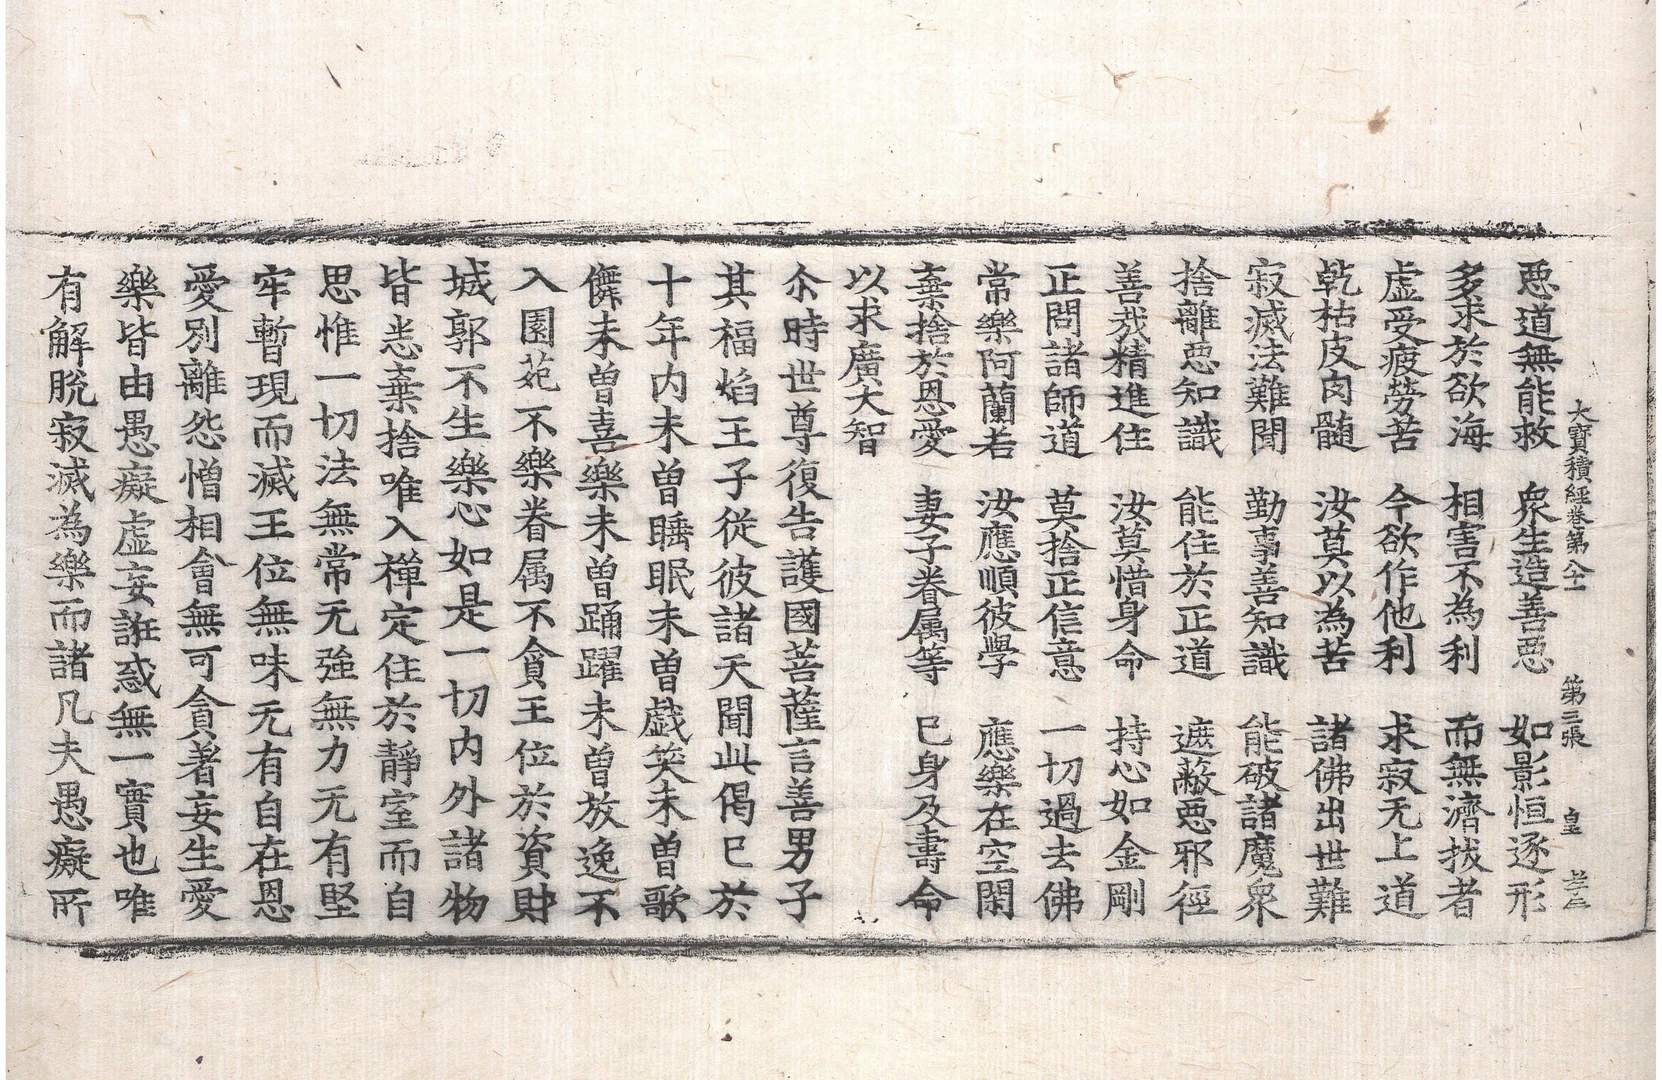 大寶積經卷第八十一 第三張 皇
惡道無能救 衆生造善惡 如影恒逐形
多求於欲海 相害不為利 而無濟拔者
虛受疲勞苦 今欲作他利 求寂无上道
乾枯皮肉髓 汝莫以為苦 諸佛出世難
寂滅法難聞 勤事善知識 能破諸魔衆
捨離惡知識 能住於正道 遮蔽惡邪徑
善哉精進住 汝莫惜身命 持心如金剛
正問諸師道 莫捨正信意 一切過去佛
常樂阿蘭若 汝應順彼學 應樂在空閑
棄捨於恩愛 妻子眷属等 已身及壽命
以求廣大智
尒時世尊復告護國菩薩言善男子
其福焰王子從彼諸天聞此偈已於
十年内未曽睡眠未曽戯笑未曽歌
儛未曽喜樂未曽踊躍未曽放逸不
入園苑不樂眷属不貪王位於資財
城郭不生樂心如是一切内外諸物
皆悉棄捨唯入禪定住於靜室而自
思惟一切法無常无強無力无有堅
牢暫現而滅王位無味无有自在恩
愛別離怨憎相會無可貪著妄生愛
樂皆由愚癡虛妄誑惑無一實也唯
有解脫寂滅為樂而諸凡夫愚癡所